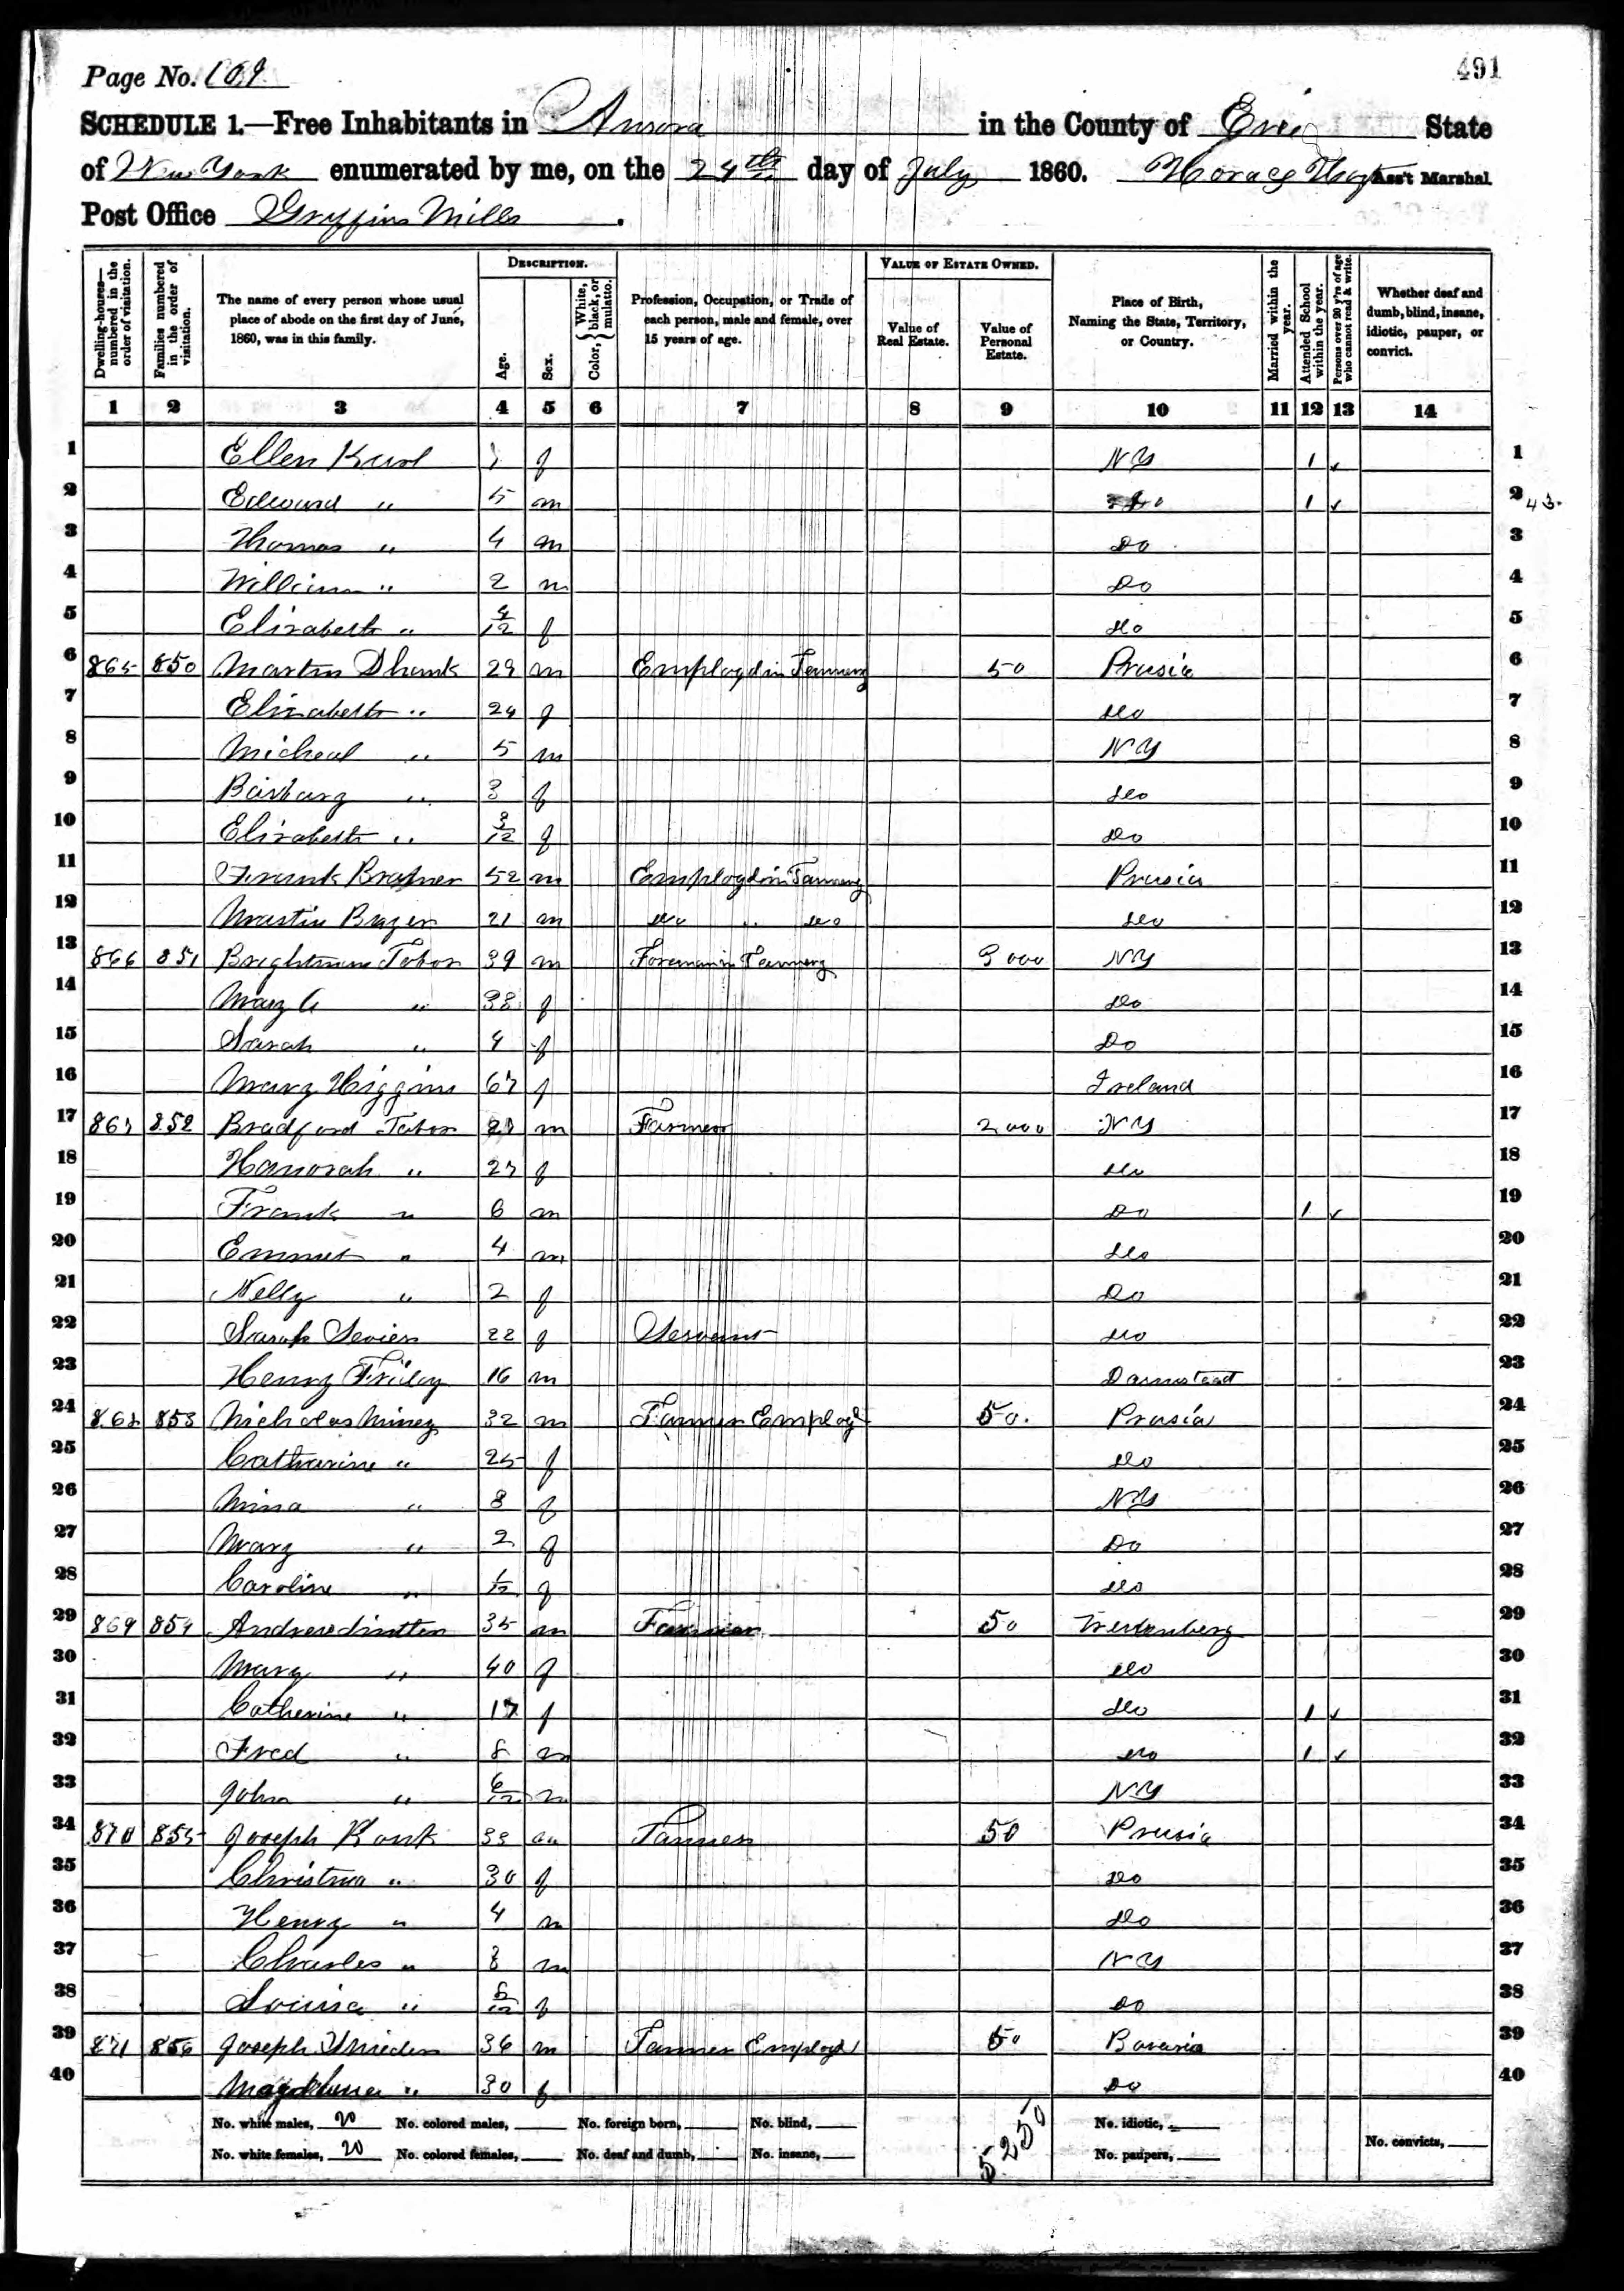 Page No. 109
491
SCHEDULE 1.—Free Inhabitants in Aurora in the County of Erie State
of New York enumerated by me, on the 24th day of July 1860. Horace Ass't Marshal.
Post Office Griffins Mills.
Dwelling-houses—numbered in the order of visitation.
Families numbered in the order of visitation.
The name of every person whose usual place of abode on the first day of June, 1860, was in this family.
DESCRIPTION.
Age.
Sex.
Color, { White, black, or mulatto.
Profession, Occupation, or Trade of each person, male and female, over 15 years of age.
VALUE OF ESTATE OWNED.
Value of Real Estate.
Value of Personal Estate.
Place of Birth, Naming the State, Territory, or Country.
Married within the year.
Attended School within the year.
Persons over 20 y'rs of age who cannot read & write.
Whether deaf and dumb, blind, insane, idiotic, pauper, or convict.
1 2 3 4 5 6 7 8 9 10 11 12 13 14
1 Ellen f NY 1 1
2 Edward " 5 m do 1 2 43.
3 Thomas " 4 m Do 3
4 William " 2 m Do 4
5 Elizabeth " 4/12 f do 5
6 865 850 Martin Shunk 29 m Employd in Tannery 50 Prusia 6
7 Elizabeth " 24 f do 7
8 Micheal " 5 m NY 8
9 Barbary " 3 f do 9
10 Elizabeth " 3/12 f Do 10
11 Frank 52 m Employd in Tannery Prusia 11
12 Martin 21 m do " do do 12
13 866 851 Brightman Tabor 39 m Foreman in Tannery 3000 NY 13
14 Mary A " 38 f do 14
15 Sarah " 4 f Do 15
16 Mary Higgins 67 f Ireland 16
17 867 852 Bradford Tabor m Farmer 2000 NY 17
18 Hanorah " 27 f do 18
19 Frank " 6 m Do 1 19
20 Emmet " 4 m do 20
21 Nelly " 2 f Do 21
22 Sarah 22 f Servant do 22
23 Henry 16 m Darmstadt 23
24 868 853 Nicholas Miney 32 m Tanner Employd 50. Prusia 24
25 Catharine " 25 f do 25
26 Mina " 3 f NY 26
27 Mary " 2 f Do 27
28 Caroline " 1/12 f do 28
29 869 854 Andrew 35 m 50 29
30 Mary " 40 f do 30
31 Catherine " 17 f do 1 31
32 Fred " 8 m do 1 32
33 John " 6/12 m NY 33
34 870 855 Joseph 33 m Tanner 50 Prusia 34
35 Christina " 30 f Do 35
36 Henry " 4 m Do 36
37 Charles " 3 m NY 37
38 Louisa " f Do 38
39 871 856 Joseph 36 m Tanner Employd 50 Bavaria 39
40 Magdelena " 30 f Do 40
No. white males, 20 No. colored males, No. foreign born, No. blind, 5250 No. idiotic,
No. white females, 20 No. colored females, No. deaf and dumb, No. insane, No. paupers, No. convicts,